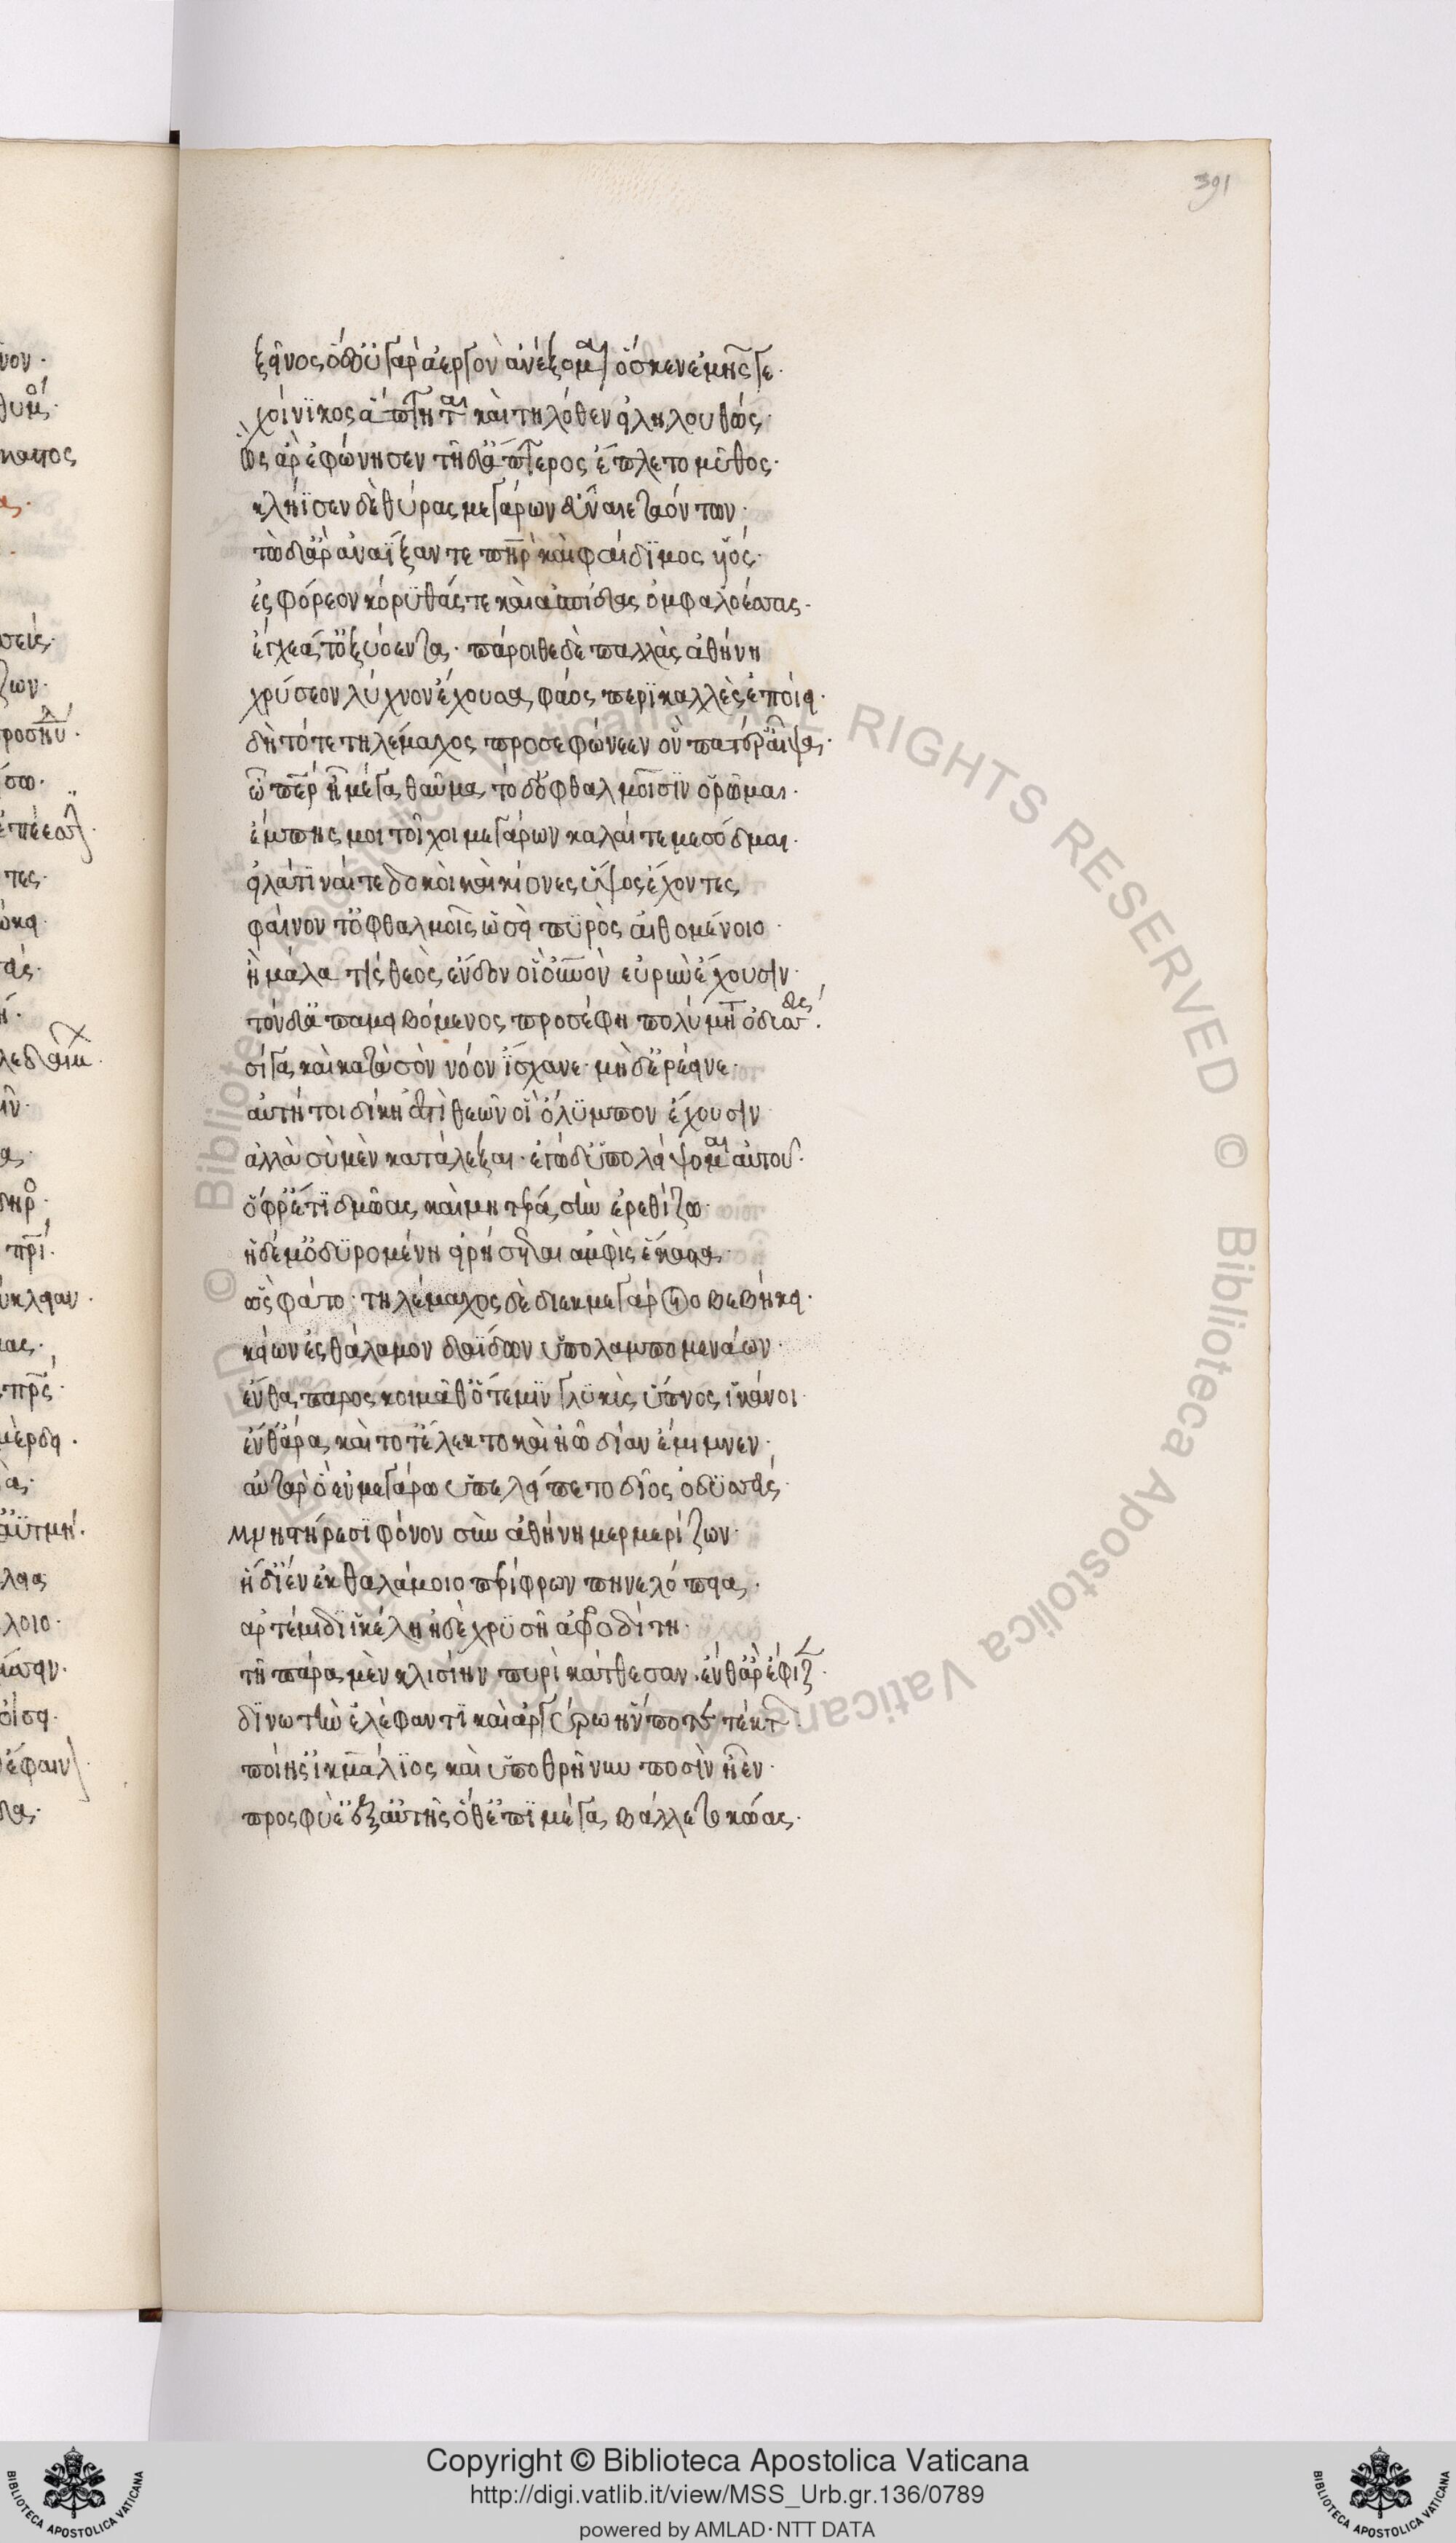 391
ξεῖνος ὅδ' οὐ γὰρ ἀεργὸν ἀνέξομαι ὅς κεν ἐμῆς γε·
χοίνικος ἅπτηται καὶ τηλόθεν εἰληλουθώς·
ὣς ἄρ' ἐφώνησεν τῇ δ' ἄπτερος ἔπλετο μῦθος·
κλήϊσεν δὲ θύρας μεγάρων εὖ ναιεταόντων·
τὼ δ' ἄρ' ἀναΐξαντε πὴρ καὶ φαίδιμος υἱός·
ἐσφόρεον κόρυθάς τε καὶ ἀσπίδας ὀμφαλοέσσας·
ἔγχεά τ' ὀξυόεντα· πάροιθε δὲ παλλὰς ἀθήνη
χρύσεον λύχνον ἔχουσα φάος περικαλλὲς ἐποίει·
δὴ τότε τηλέμαχος προσεφώνεεν ὃν πατέρ' αἶψα·
ὦ πάτερ ἦ μέγα θαῦμα τόδ' ὀφθαλμοῖσιν ὁρῶμαι·
ἔμπης μοι τοῖχοι μεγάρων καλαί τε μεσόδμαι·
εἰλάτιναί τε δοκοὶ καὶ κίονες ὑψόσ' ἔχοντες
φαίνοντ' ὀφθαλμοῖς ὡσεὶ πυρὸς αἰθομένοιο·
ἦ μάλα τίς θεὸς ἔνδον οἳ οὐνὸν εὐρὺν ἔχουσιν·
τὸν δ' ἀπαμειβόμενος προσέφη πολύμητ ὀδυσσεύς·
σίγα καὶ κατὰ σὸν νόον ἴσχανε· μὴ δ' ἐρέεινε·
αὕτη τοι δίκη ἐστὶ θεῶν οἳ ὄλυμπον ἔχουσιν·
ἀλλὰ σὺ μὲν κατάλεξαι· ἐγὼ δ' ὑπολείψομαι αὐτοῦ·
ὄφρ' ἔτι δμωὰς καὶ μητέρα σὴν ἐρεθίζω·
ἡ δέ μ' ὀδυρομένη εἰρήσεται ἀμφὶς ἕκαστα·
ὣς φάτο· τηλέμαχος δὲ διὲκ μεγάροιο βεβήκει·
κείων ἐς θάλαμον δαΐδων ὑπολαμπομενάων·
ἔνθα πάρος κοιμᾶθ' ὅτε μιν γλυκὺς ὕπνος ἱκάνοι·
ἔνθ' ἄρα καὶ τότ' ἔλεκτο καὶ ἠῶ δῖαν ἔμιμνεν·
αὐτὰρ ὁ ἐν μεγάρω ὑπελείπετο δῖος ὀδυσσεύς·
μνηστήρεσι φόνον σὺν ἀθήνη μερμερίζων·
ἡ δ' ἴεν ἐκ θαλάμοιο περίφρων πηνελόπεια·
ἀρτέμιδι ἰκέλη ἠδὲ χρυσῆ ἀφροδίτη·
τῇ πάρα μὲν κλισίην πυρὶ κάτθεσαν· ἔνθ' ἄρ' ἐφῖζ·
δινωτὴν ἐλέφαντι καὶ ἀργύρω ἥν ποτε τέκτ·
ποίησ' ἰκμάλιος καὶ ὑπὸ θρῆνυν ποσὶν ἧεν·
προσφυέ' ἐξ αὐτῆς ὅθ' ἐπὶ μέγα βάλλετο κῶας·
Copyright © Biblioteca Apostolica Vaticana
http://digi.vatlib.it/view/MSS_Urb.gr.136/0789
powered by AMLAD·NTT DATA